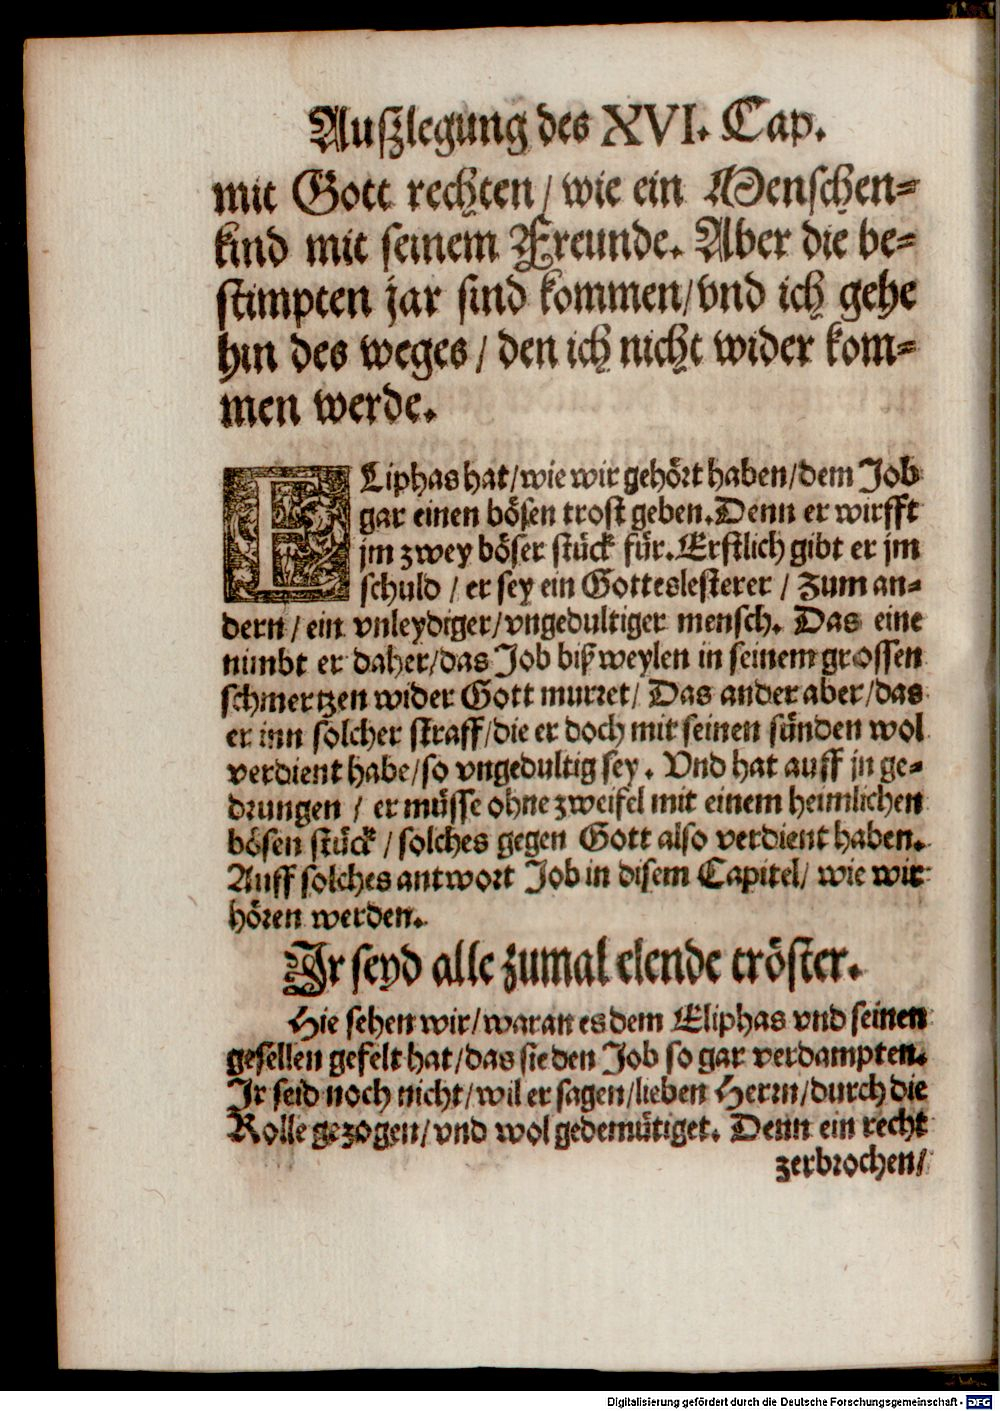 Auſzlegung des XVI. Cap.
mit Gott rechten / wie ein Menſchen⸗
kind mit ſeinem Freunde. Aber die be⸗
ſtimpten jar ſind kommen/vnd ich gehe
hin des weges / den ich nicht wider kom⸗
men werde.
ELiphas hat/wie wir gehört haben/dem Job
gar einen böſen troſt geben.Denn er wirfft
jm zwey böſer ſtück für.Erſtlich gibt er jm
ſchuld / er ſey ein Gottesleſterer / Zum an⸗
dern / ein vnleydiger/vngedultiger menſch. Das eine
nimbt er daher/das Job biß weylen in ſeinem groſſen
ſchmertzen wider Gott murret/ Das ander aber/das
er inn ſolcher ſtraff/die er doch mit ſeinen ſünden wol
verdient habe/ſo vngedultig ſey. Vnd hat auff jn ge⸗
drungen / er müſſe ohne zweifel mit einem heimlichen
böſen ſtück / ſolches gegen Gott alſo verdient haben.
Auff ſolches antwort Job in diſem Capitel/ wie wir
hören werden.
Jr ſeyd alle zumal elende tröſter.
Hie ſehen wir/waran es dem Eliphas vnd ſeinen
geſellen gefelt hat/das ſie den Job ſo gar verdampten.
Jr ſeid noch nicht/wil er ſagen/lieben Herrn/durch die
Rolle gezogen/vnd wol gedemütiget. Denn ein recht
zerbrochen/
Digitalisierung gefördert durch die Deutsche Forschungsgemeinschaft - DFG